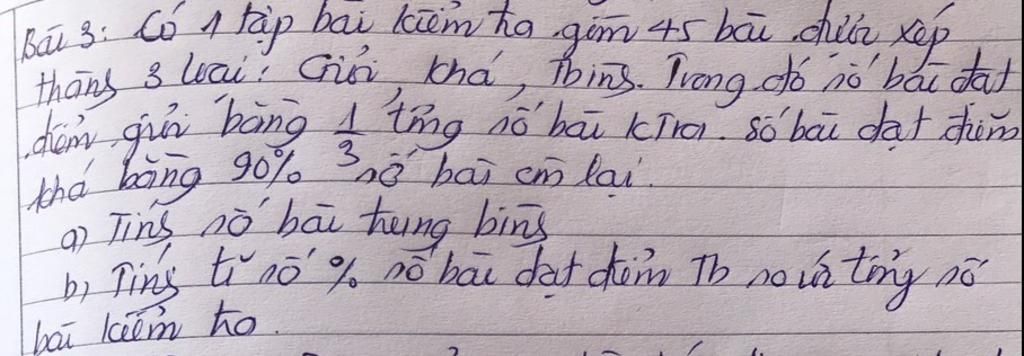 Bài 3: Có 1 tập bài kiểm tra gồm 45 bài được xếp
thành 3 loại: Giỏi, khá, Tbình. Trong đó số bài đạt
điểm giỏi bằng 1/3 tổng số bài kTra. Số bài đạt điểm
khá bằng 90% số bài còn lại.
a) Tính số bài trung bình
b) Tính tỉ số % số bài đạt điểm Tb so với tổng số
bài kiểm tra.